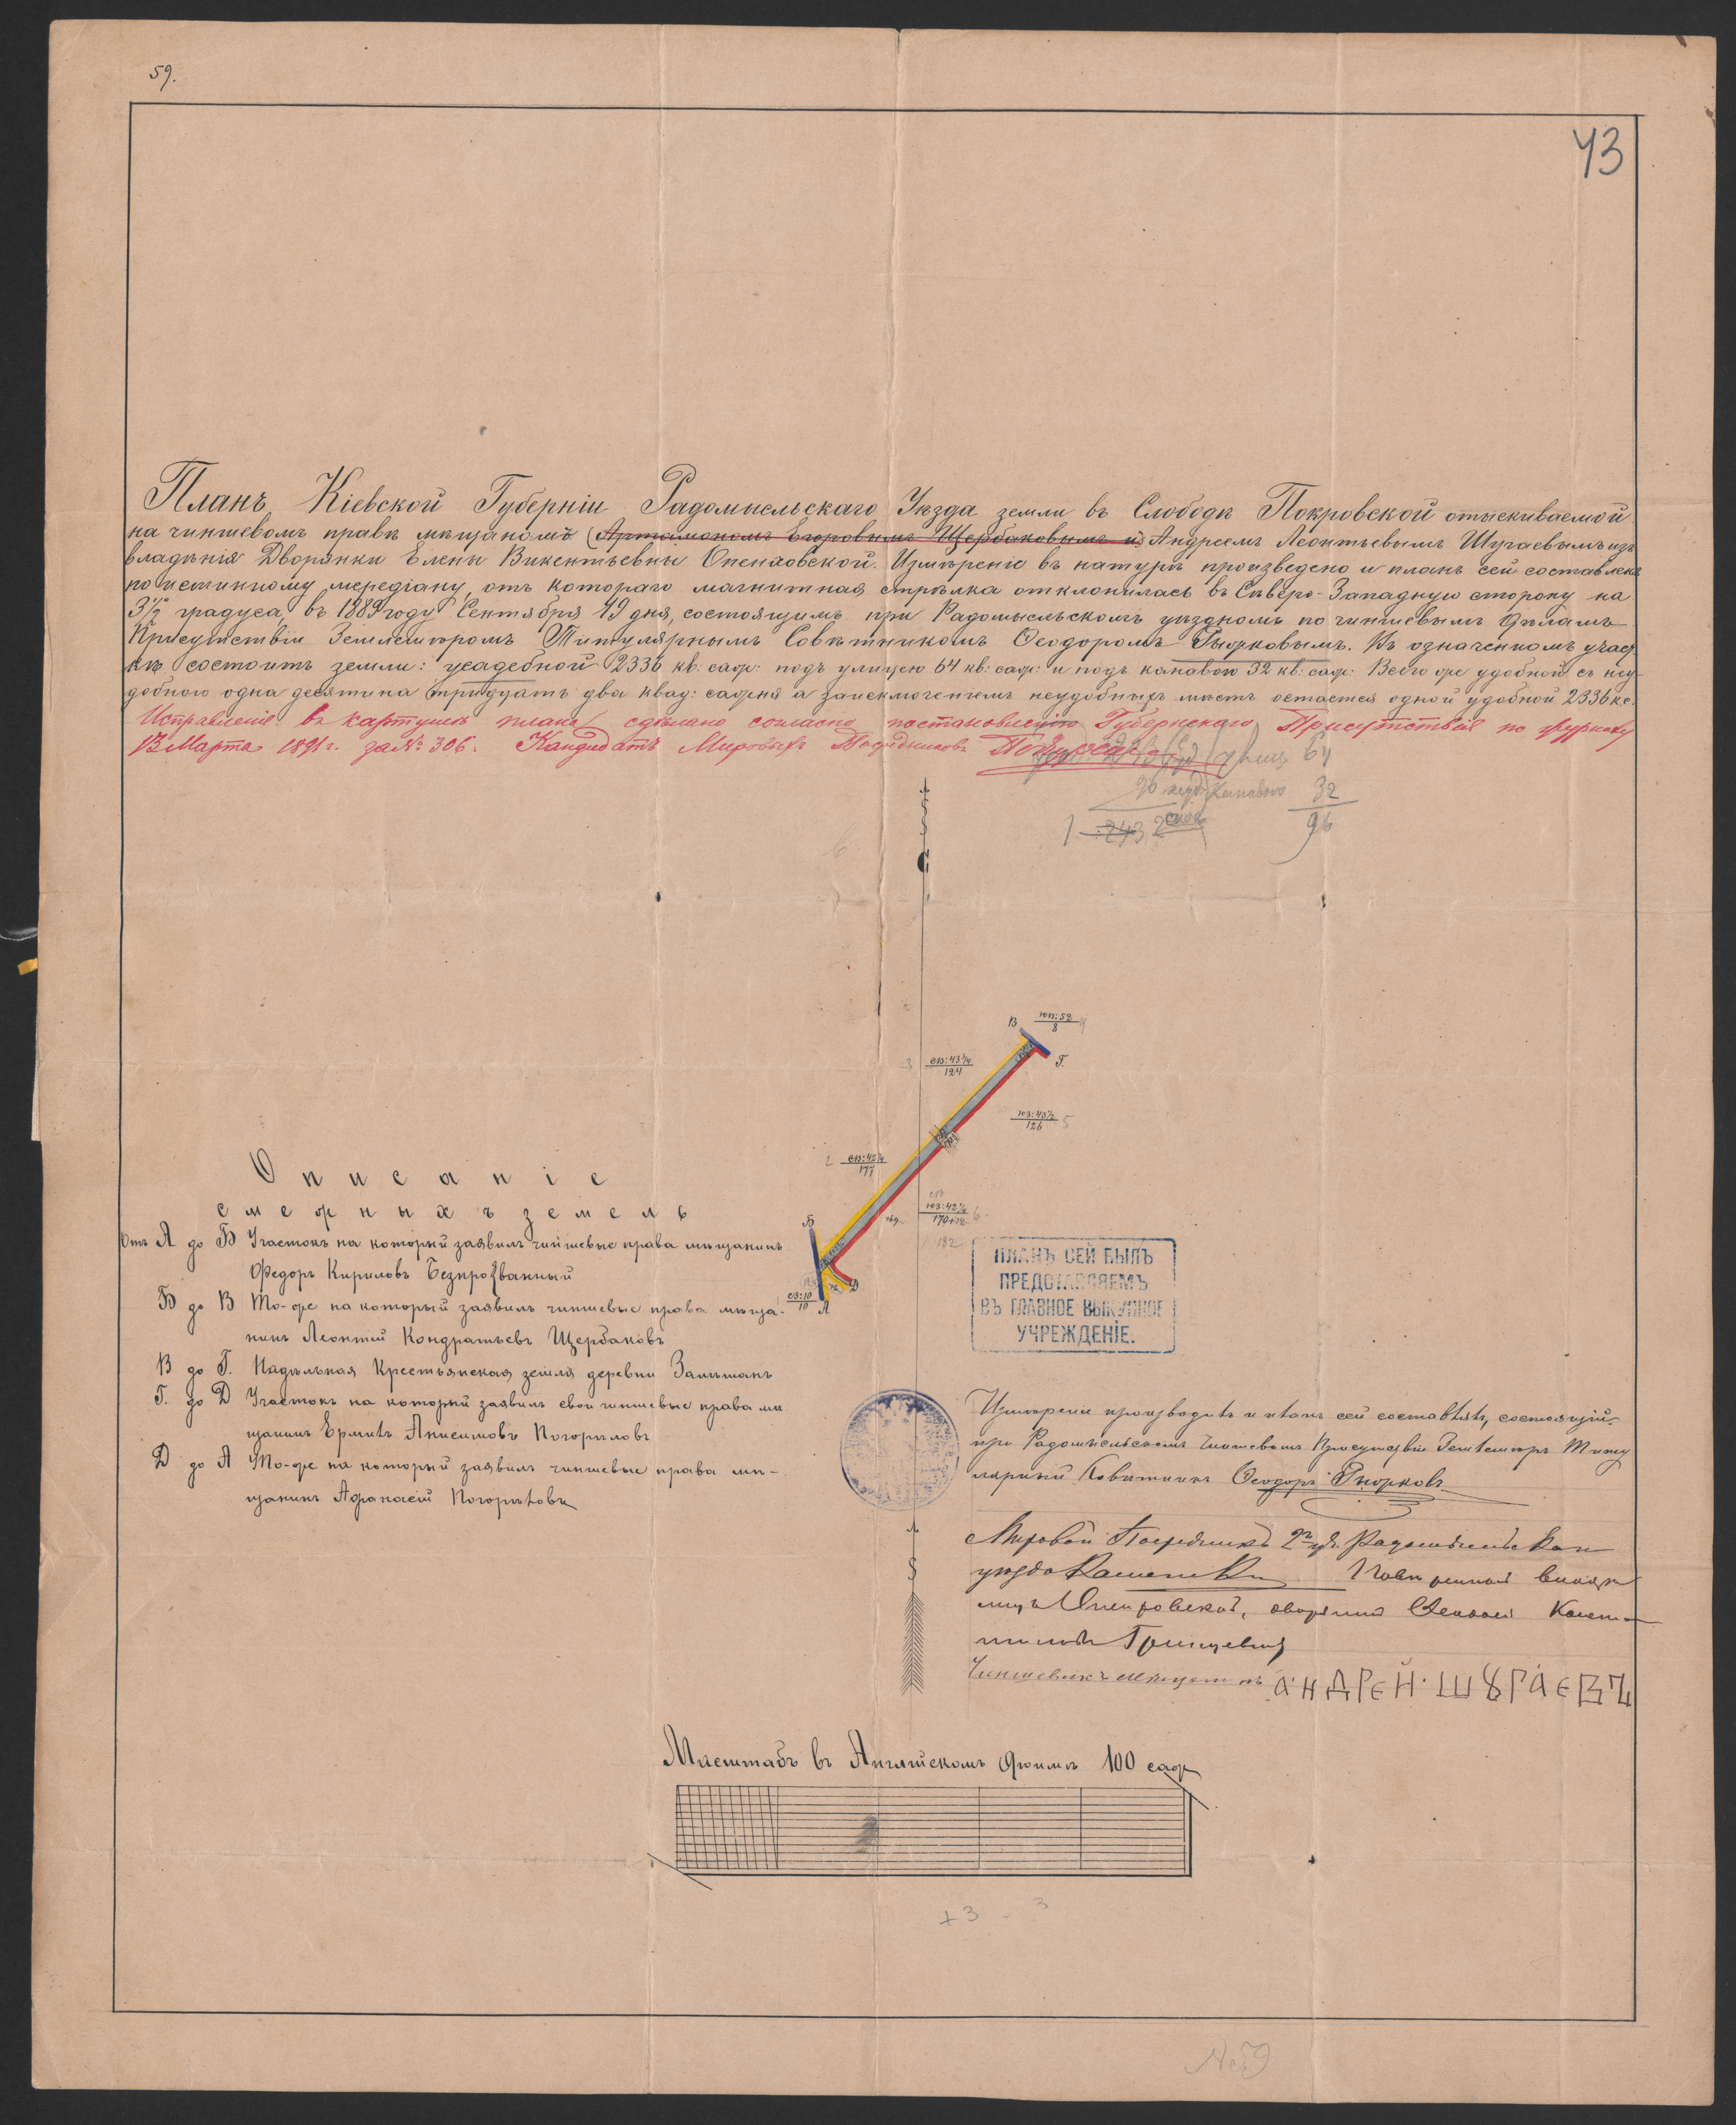 59.
43
Планъ Кіевской Губерніи Радомысльскаго Уѣзда земли въ Слободѣ Покровской отыскиваемой
на чиншевомъ правѣ мѣщаномъ (Артамономъ Егоровымъ Щербаковымъ и) Андреемъ Леонтьевымъ Шугаевымъ изъ
владѣнія Дворянки Елены Викентьевны Опенховской. Измѣреніе въ натурѣ произведено и планъ сей составленъ
по истинному мередіану, отъ котораго магнитная стрѣлка отклонилась въ Сѣверо-Западную сторону на
3½ градуса, въ 1889 году Сентября 19 дня, состоящимъ при Радомысльскомъ уѣздномъ по чиншевымъ дѣламъ
Присутствіи Землемѣромъ Титулярнымъ Совѣтникомъ Ѳеодоромъ Рыжковымъ. Въ означенномъ участ
кѣ состоитъ земли: усадебной 2336 кв: саж: подъ улицею 64 кв: саж: и подъ канавою 32 кв: саж: Всего же удобной съ неу-
добною одна десятина тридцать два квад: саженя а заисключеніемъ неудобныхъ мѣстъ остается одной удобной 2336 к.с.
Исправленіе въ картушѣ плана сдѣлано согласно постановленію Губернскаго Присутствія по журналу
13 Марта 1891 г. за № 306. Кандидатъ Мировыхъ Посредниковъ
улиц 64
90 неуд канавою 32
1 - 2432 96
В юв:52 8
Г.
3 св:43¼ 124
юз:43½ 126 5
2 св:42¼ 177
юз:42¼ 170+12 6
182
Б
Д
сз:10 10 А
Описаніе
смежныхъ земель
Отъ А до Б Участокъ на который заявилъ чиншевые права мѣщанинъ
Федоръ Кириловъ Безпрозванный
Б до В То-же на который заявилъ чиншевые права мѣща-
нинъ Леонтій Кондратьевъ Щербаковъ
В до Г. Надѣльная Крестьянская земля деревни
Г. до Д Участокъ на который заявилъ свои чиншевые права мѣ
щанинъ Ермилъ Анисимовъ Погорѣловъ
Д до А То-же на который заявилъ чиншевые права мѣ-
щанинъ Афанасій Погорѣловъ
ПЛАНЪ СЕЙ БЫЛЪ
ПРЕДСТАВЛЯЕМЪ
ВЪ ГЛАВНОЕ ВЫКУПНОЕ
УЧРЕЖДЕНІЕ.
Измѣреніе производилъ и планъ сей составлялъ, состоящій
при Радомысльскомъ Чиншевомъ Присутствіи Землемѣръ Титу
лярный Совѣтникъ Ѳеодоръ Рыжковъ
Мировой Посредникъ 2го уч. Радомысльскаго
уѣзда Повѣренный владѣ
лицы Опенховской, дворянинъ
Гринцевичъ
Чиншевикъ мѣщанинъ АНДРЕЙ ШУГАЕВЪ
Масштабъ въ Англійскомъ дюймѣ 100 саж
+3 - 3
№ 59